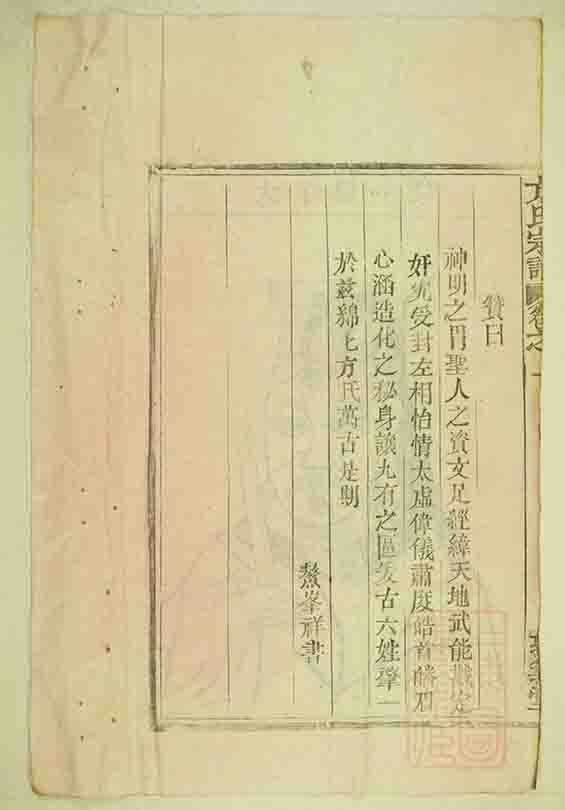 方氏宗譜 卷之一
贊曰
神明之冑聖人之資文足經緯天地武能戡定
奸宄受封左相怡情太虛偉儀肅度皓首皤眉
心涵造化之秘身讓九有之區爰古六姓肇
於茲綿七方氏萬古是則
鰲峯祥書